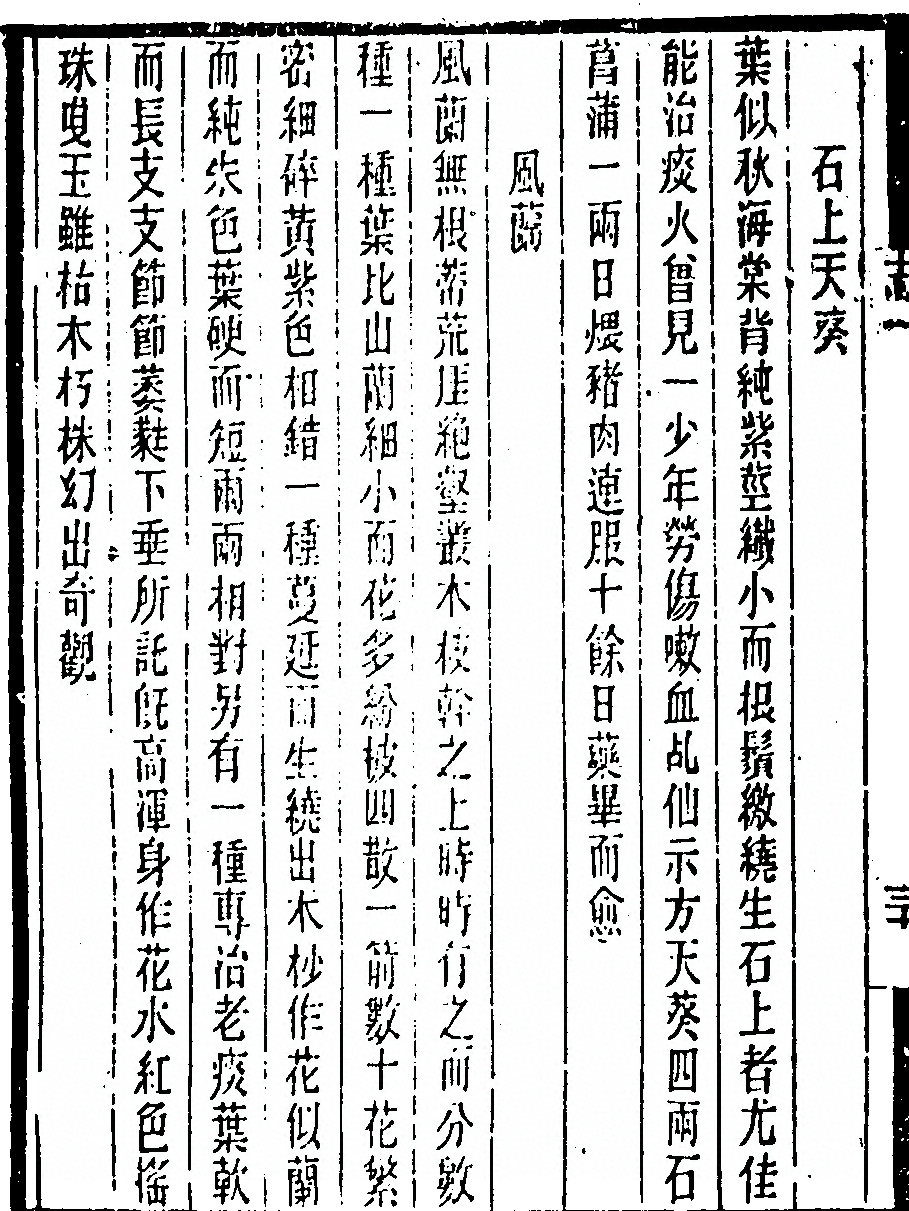 石上天葵
葉似秋海棠背純紫莖纖小而根鬚繳繞生石上者尤佳
能治痰火曾見一少年勞傷嗽血乩仙示方天葵四兩石
菖蒲一兩日煨豬肉連服十餘日藥畢而愈
風蘭
風蘭無根蒂荒厓絶壑叢木枝幹之上時時有之而分數
種一種葉比山蘭細小而花多紛披四散一箭數十花繁
密細碎黃紫色相錯一種蔓延而生繞出木杪作花似蘭
而純朱色葉硬而短兩兩相對另有一種專治老痰葉軟
而長支支節節蔞蕤下垂所託旣高渾身作花水紅色搖
珠曳玉雖枯木朽株幻出奇觀
志一